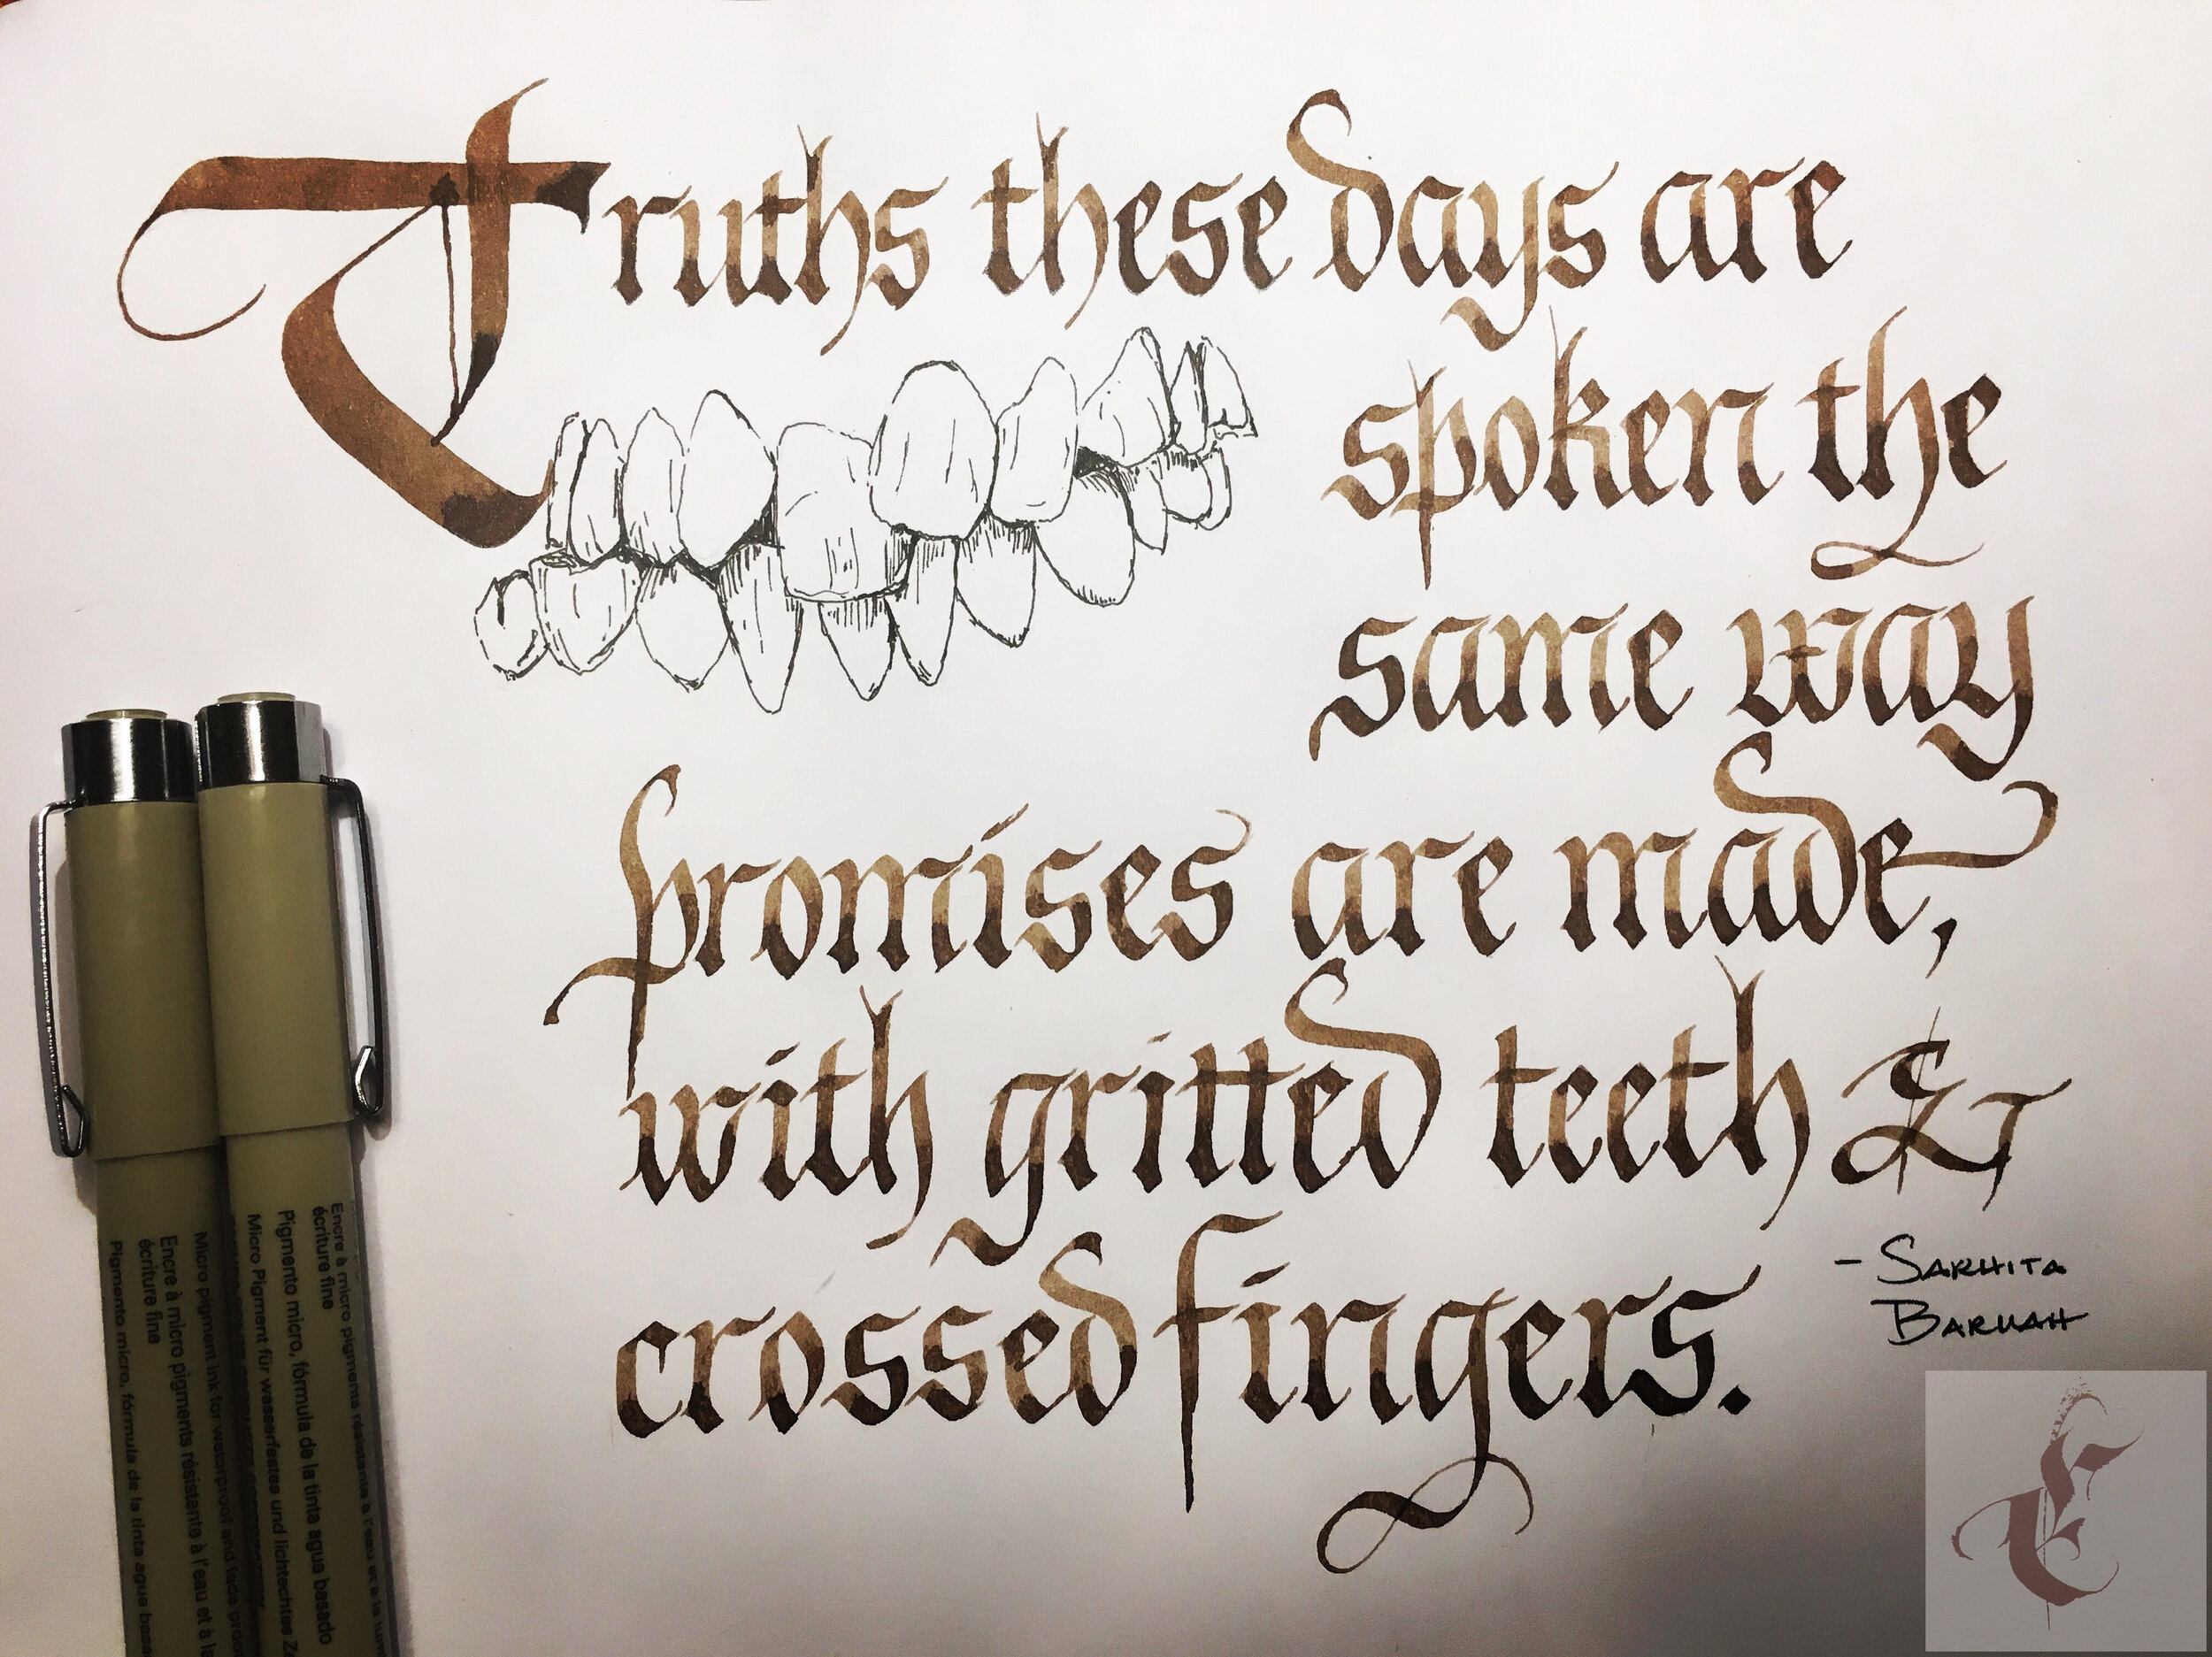 Truths these days are
spoken the
same way
promises are made,
with gritted teeth &
crossed fingers.
- SARHITA
BARUAH
Pigmento micro, fórmula de la tinta agua basa
écriture fine
Encre à micro pigments résistante à l'eau et à la
Micro pigment ink for waterproof and fade proof
Micro Pigment für wasserfestes und lichtechtes
Pigmento micro, fórmula de la tinta agua basado
écriture fine
Encre à micro pigments résistante à l'eau et à la lum